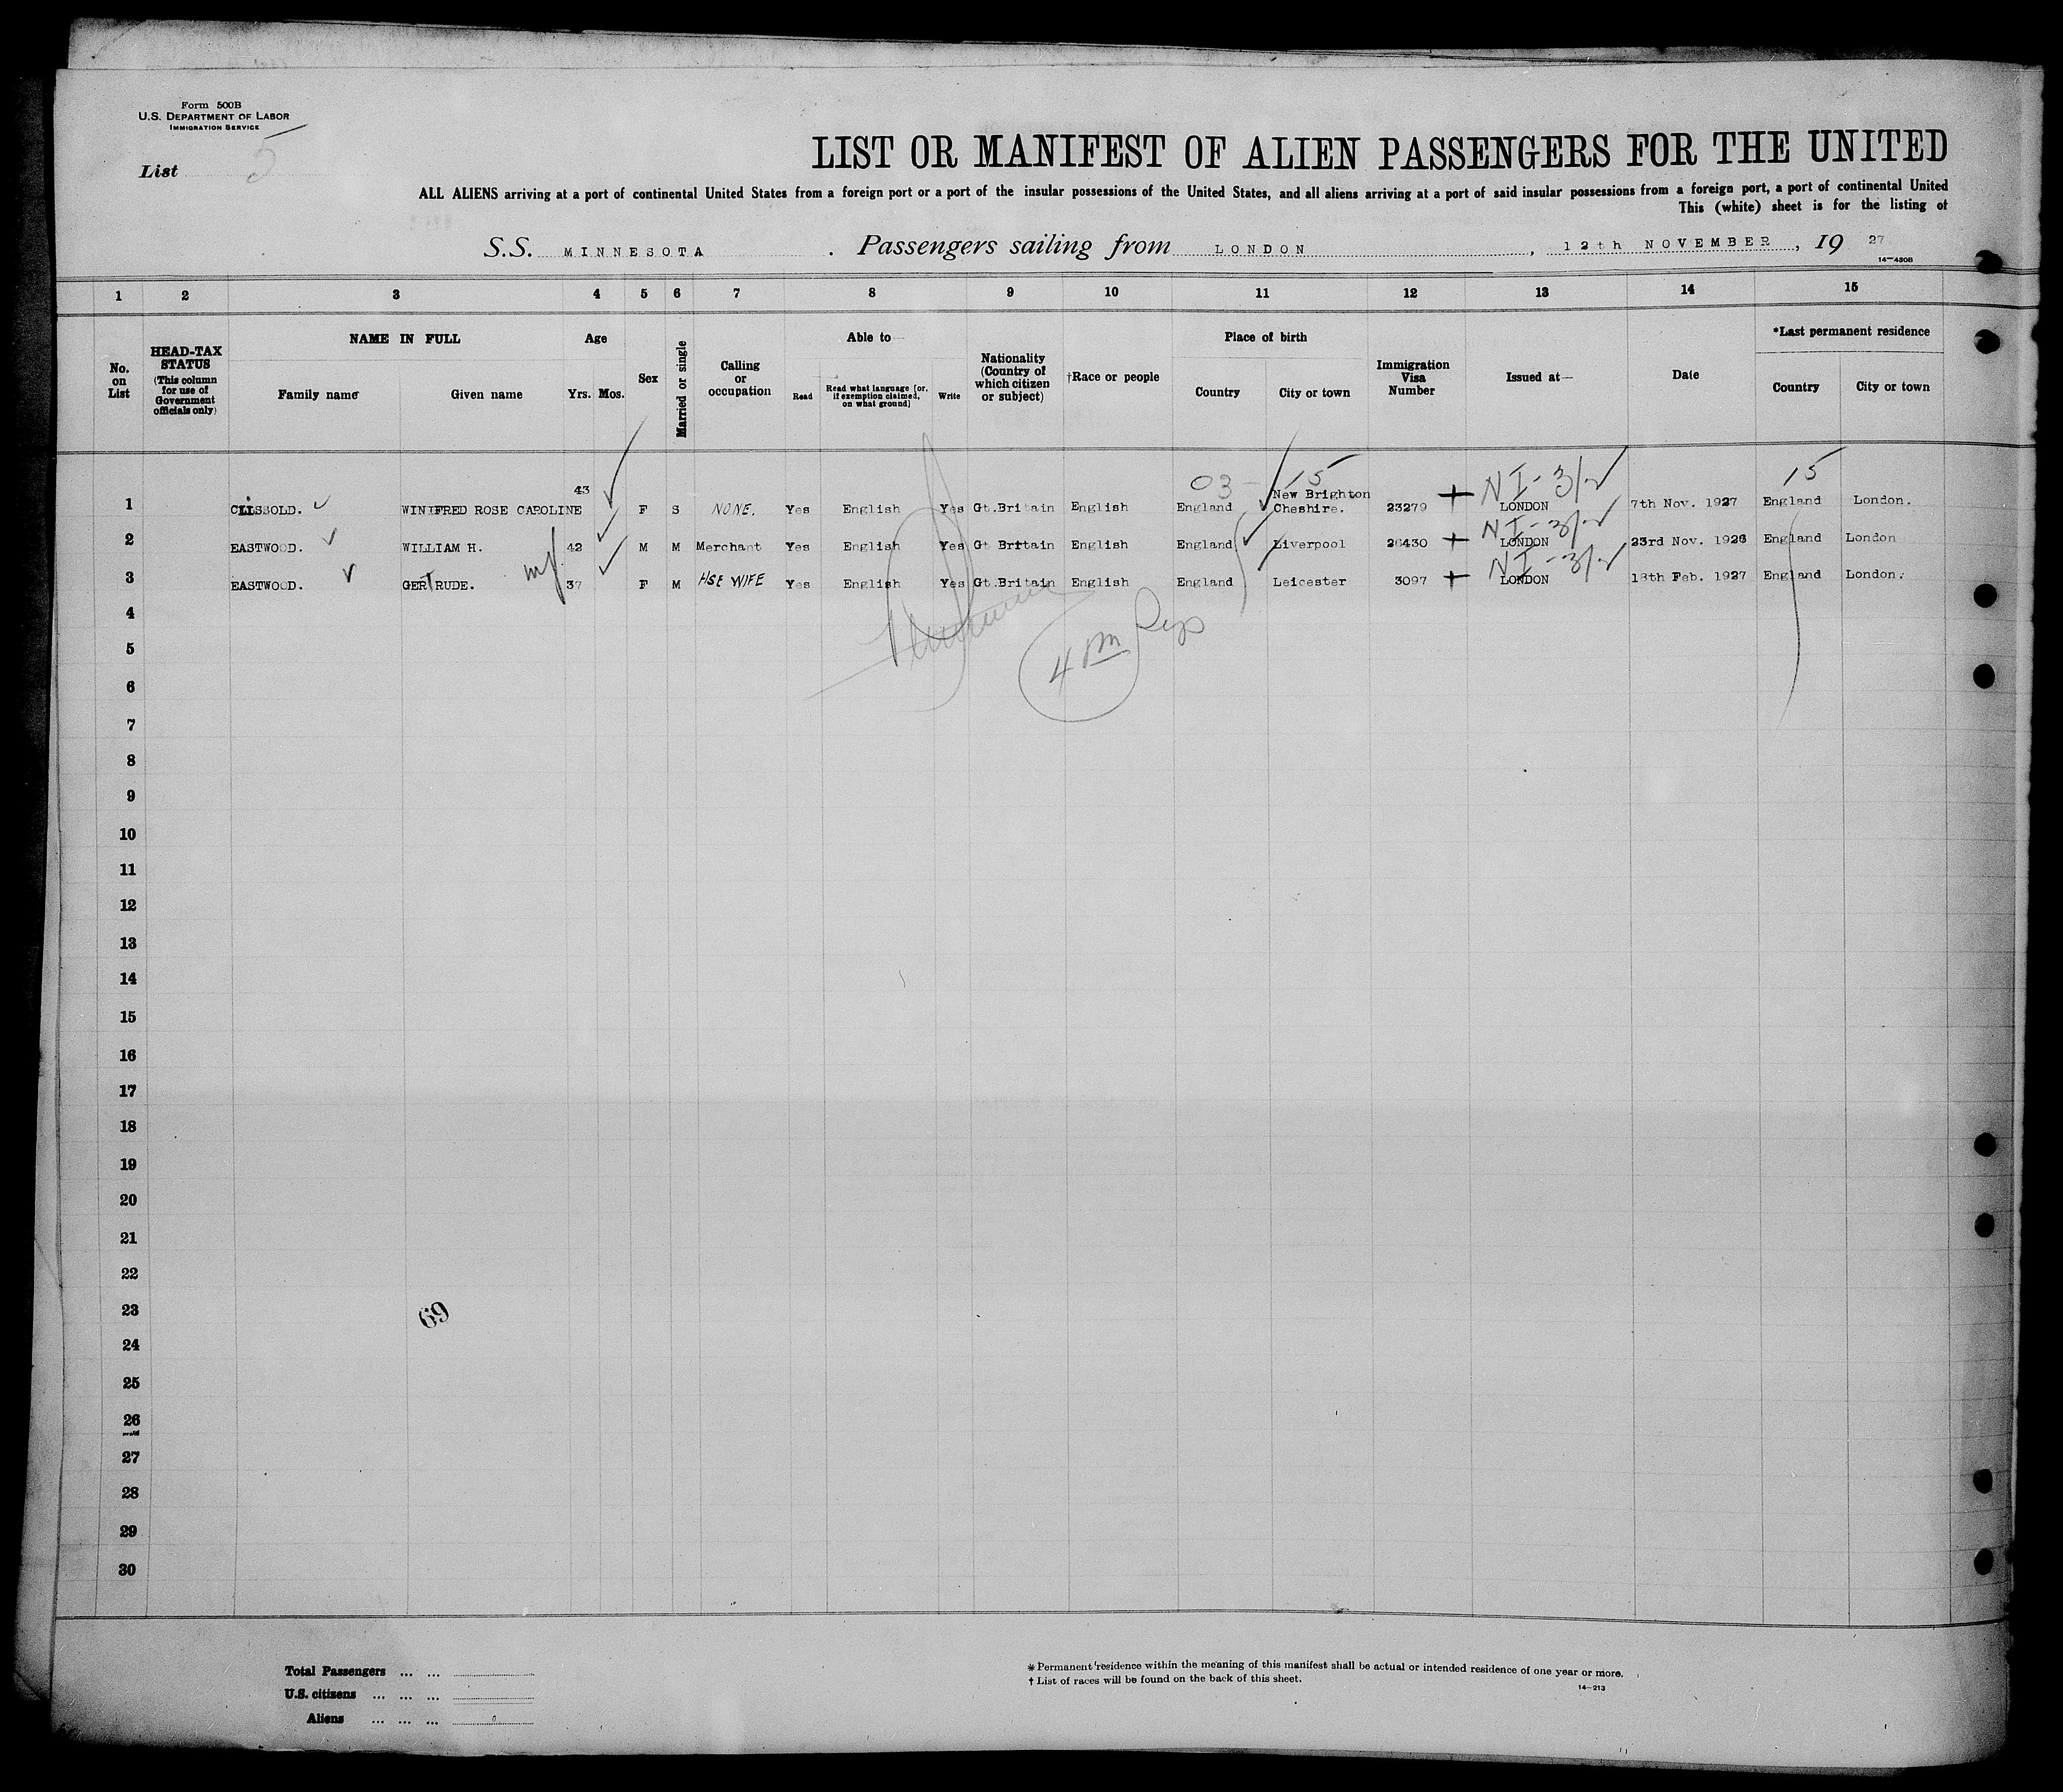 Form 500B
U.S. DEPARTMENT OF LABOR
IMMIGRATION SERVICE
List 5
LIST OR MANIFEST OF ALIEN PASSENGERS FOR THE UNITED
ALL ALIENS arriving at a port of continental United States from a foreign port or a port of the insular possessions of the United States, and all aliens arriving at a port of said insular possessions from a foreign port, a port of continental United
This (white) sheet is for the listing of
S.S. MINNESOTA . Passengers sailing from LONDON , 12th NOVEMBER , 19 27
14-430B
1 2 3 4 5 6 7 8 9 10 11 12 13 14 15
No. on List
HEAD-TAX STATUS (This column for use of Government officials only)
NAME IN FULL
Family name Given name
Age
Yrs. Mos.
Sex
Married or single
Calling or occupation
Able to
Read Read what language [or, if exemption claimed, on what ground] Write
Nationality (Country of which citizen or subject)
†Race or people
Place of birth
Country City or town
Immigration Visa Number
Issued at—
Date
*Last permanent residence
Country City or town
03 - 15 NI-3/2 15
1 CLISSOLD. WINIFRED ROSE CAROLINE 43 F S NONE. Yes English Yes Gt.Britain English England New Brighton Cheshire. 23279 LONDON 7th Nov. 1927 England London.
NI-3/2
2 EASTWOOD. WILLIAM H. 42 M M Merchant Yes English Yes Gt Britain English England Liverpool 26430 LONDON 23rd Nov. 1926 England London
NI-3/2
3 EASTWOOD. GERTRUDE. 37 F M HSE WIFE Yes English Yes Gt.Britain English England Leicester 3097 LONDON 18th Feb. 1927 England London.
4
5
6
7
8
9
10
11
12
13
14
15
16
17
18
19
20
21
22
23
69
24
25
26
27
28
29
30
Total Passengers ... ...
U.S. citizens ... ... ...
Aliens ... ... ...
*Permanent residence within the meaning of this manifest shall be actual or intended residence of one year or more.
† List of races will be found on the back of this sheet.
14-213